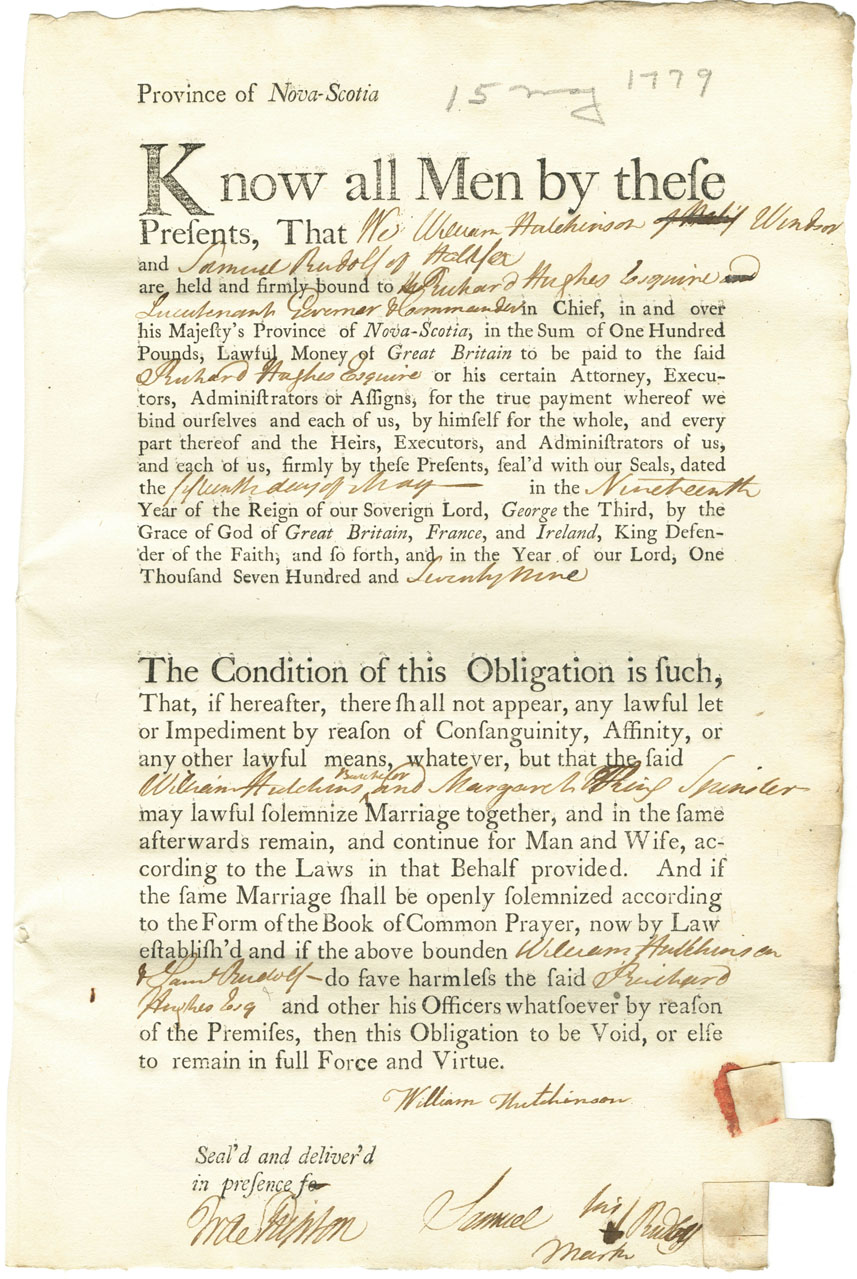 Province of Nova-Scotia
15 may 1779
Know all Men by theſe
Preſents, That We William Hutchinson of Windsor
and Samuel Rudolf of Halifax
are held and firmly bound to Richard Hughes Esquire
Lieutenant Governer & Commander in Chief, in and over
his Majeſty's Province of Nova-Scotia, in the Sum of One Hundred
Pounds, Lawful Money of Great Britain to be paid to the ſaid
Richard Hughes Esquire or his certain Attorney, Execu-
tors, Adminiſtrators or Aſſigns, for the true payment whereof we
bind ourſelves and each of us, by himſelf for the whole, and every
part thereof and the Heirs, Executors, and Adminiſtrators of us,
and each of us, firmly by theſe Preſents, ſeal'd with our Seals, dated
the fifteenth day of May in the Nineteenth
Year of the Reign of our Soverign Lord, George the Third, by the
Grace of God of Great Britain, France, and Ireland, King Defen-
der of the Faith, and ſo forth, and in the Year of our Lord, One
Thouſand Seven Hundred and Seventy nine
The Condition of this Obligation is ſuch,
That, if hereafter, there ſhall not appear, any lawful let
or Impediment by reaſon of Conſanguinity, Affinity, or
any other lawful means, whatever, but that the ſaid
William Hutchins Batchelor and Margaret King Spinster
may lawful ſolemnize Marriage together, and in the ſame
afterwards remain, and continue for Man and Wife, ac-
cording to the Laws in that Behalf provided. And if
the ſame Marriage ſhall be openly ſolemnized according
to the Form of the Book of Common Prayer, now by Law
eſtabliſh'd and if the above bounden William Hutchinson
& Saml Rudolf do ſave harmleſs the ſaid Richard
Hughes Esq and other his Officers whatſoever by reaſon
of the Premiſes, then this Obligation to be Void, or elſe
to remain in full Force and Virtue.
William Hutchinson
Seal'd and deliver'd
in preſence
Samuel his Rudolf
mark